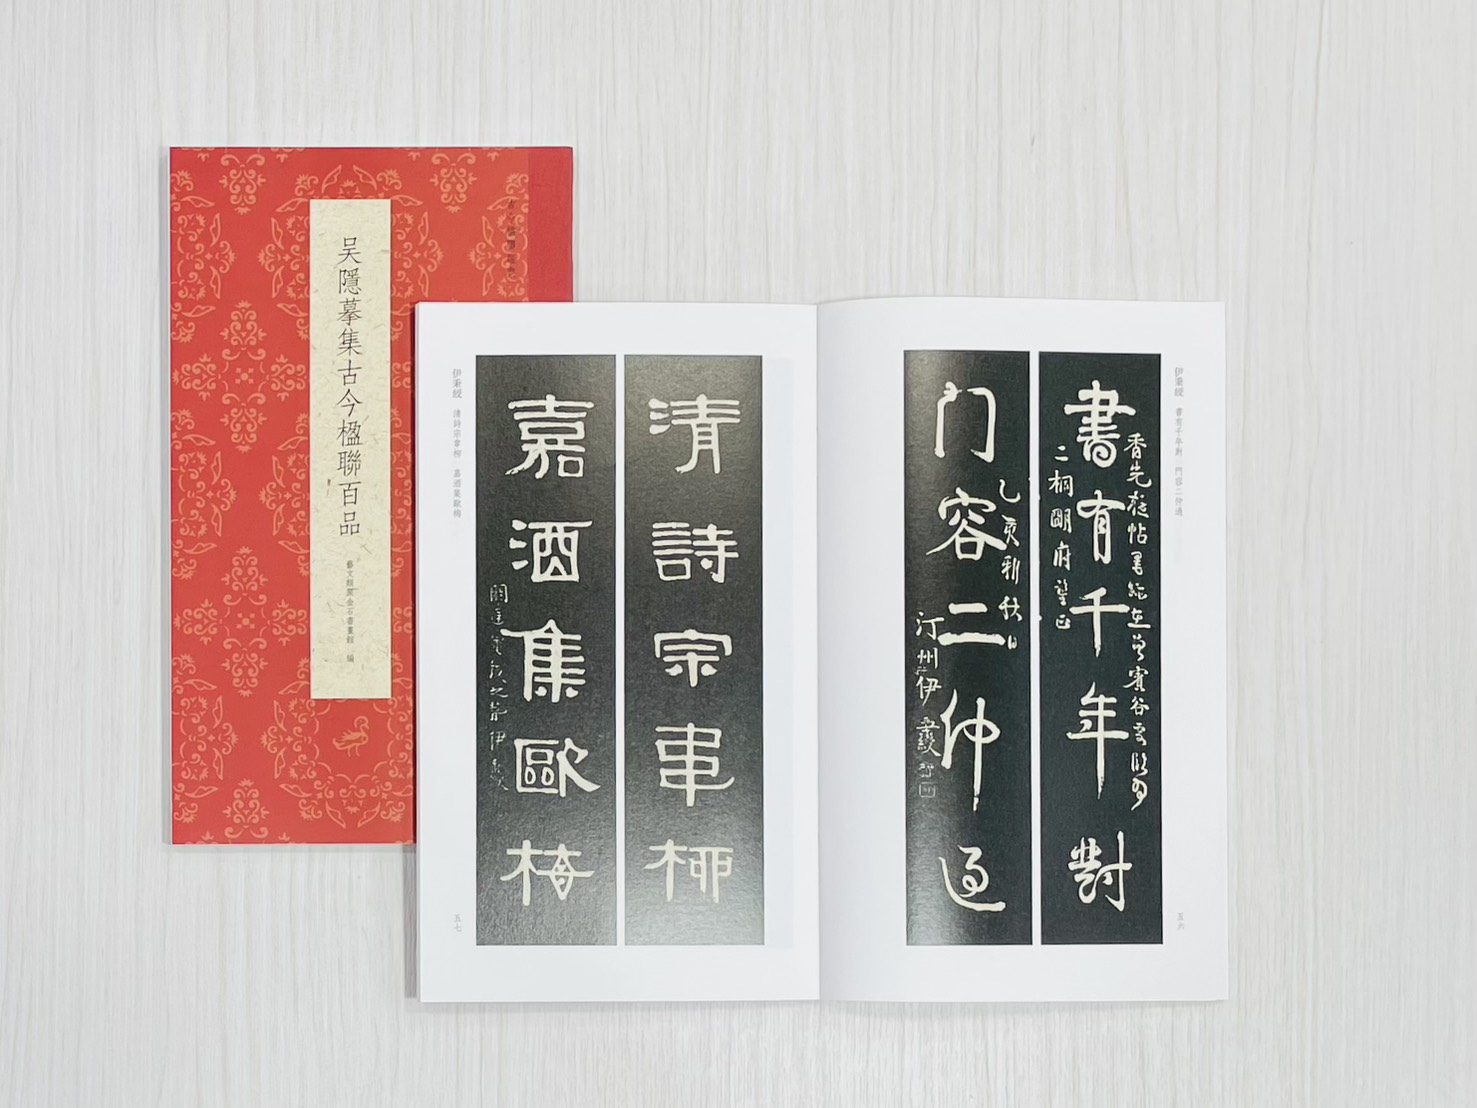 吴隱摹集古今楹聯百品
藝文類聚金石書畫館 編
伊秉綬 書有千年對 門容二仲過
書有千年對
二桐明府望正
门容二仲過
乙亥新秋日
汀州伊秉綬
五六
清詩宗韋柳
嘉酒集歐梅
伊秉綬 清詩宗韋柳 嘉酒集歐梅
五七